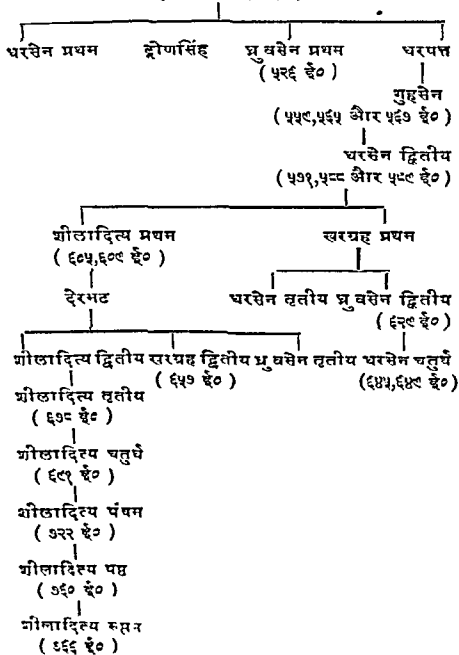 धरसेन प्रथम द्रोणसिंह ध्रुवसेन प्रथम धरपत्त
(५२६ ई०)
गुहसेन
(५५९,५६५ और ५६७ ई०)
धरसेन द्वितीय
(५७१,५८८ और ५८९ ई०)
शीलादित्य प्रथम खरग्रह प्रथम
(६०५,६०९ ई०)
देरभट धरसेन तृतीय ध्रुवसेन द्वितीय
(६२९ ई०)
शीलादित्य द्वितीय खरग्रह द्वितीय ध्रुवसेन तृतीय धरसेन चतुर्थ
(६५७ ई०) (६४५,६४९ ई०)
शीलादित्य तृतीय
(६७८ ई०)
शीलादित्य चतुर्थ
(६९१ ई०)
शीलादित्य पंचम
(७२२ ई०)
शीलादित्य षष्ठ
(७६० ई०)
शीलादित्य